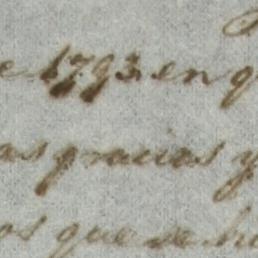 e 1793. en q
as gracias y
os que se ha